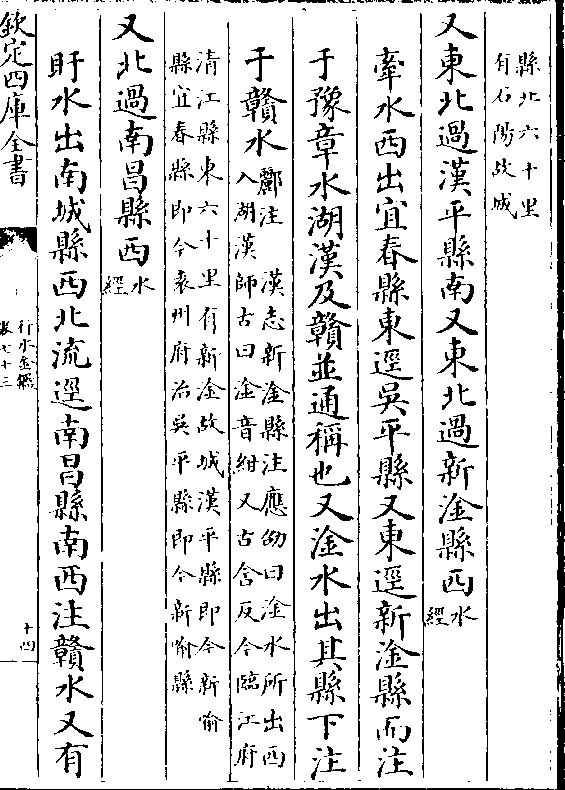 縣北六十里
有石陽故城
又東北過漢平縣南又東北過新淦縣西
水
經
牽水西出宜春縣東逕吳平縣又東逕新淦縣而注
于豫章水湖漢及贛並通稱也又淦水出其縣下注
于贛水
酈注　漢志新淦縣注應劭曰淦水所出西
入湖漢師古曰淦音紺又古含反今臨江府
清江縣東六十里有新淦故城漢平縣即今新喻
縣宜春縣即今袁州府治吳平縣即今新喻縣
又北過南昌縣西
水
經
盱水出南城縣西北流逕南昌縣南西注贛水又有
欽定四庫全書
行水金鑑
卷七十三
十四